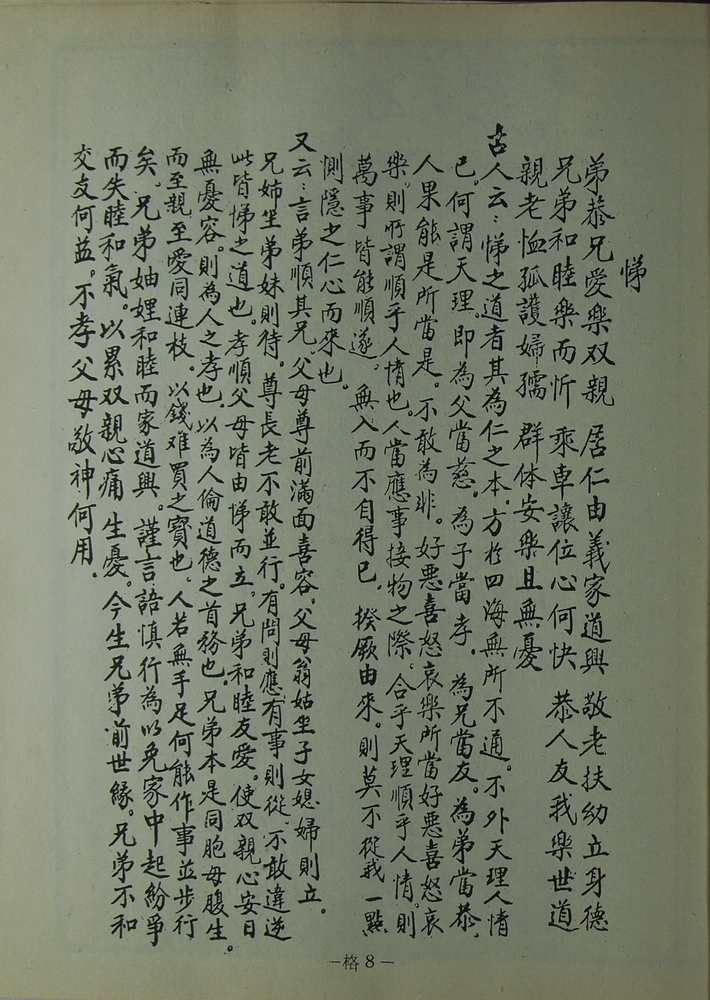 悌
弟恭兄愛樂双親 居仁由義家道興 敬老扶幼立身德
兄弟和睦樂而忻 乘車讓位心何快 恭人友我樂世道
親老恤孤護婦孺 群体安樂且無憂
古人云：悌之道者其為仁之本．方於四海無所不通。不外天理人情
已．何謂天理．即為父當慈．為子當孝．為兄當友。為弟當恭．
人果能是所當是．不敢為非。好悪喜怒哀樂所當好悪喜怒哀
樂．則所謂順乎人情也。人當應事接物之際．合乎天理順乎人情．則
萬事皆能順遂．無入而不自得已．揆厥由來．則莫不從我一點
惻隱之仁心而來也。
又云：言弟順其兄．父母尊前滿面喜容．父母翁姑坐子女媳婦則立．
兄姉坐弟妹則待．尊長老不敢並行．有問則應．有事則從．不敢違逆
此皆悌之道也．孝順父母皆由悌而立．兄弟和睦友愛．使双親心安日
無憂容。則為人之孝也．以為人倫道德之首務也．兄弟本是同胞母腹生。
而至親至愛同連枝．以錢难買之寶也．人若無手足何能作事並步行
矣．兄弟妯娌和睦而家道興。謹言語慎行為以免家中起紛爭
而失睦和氣。以累双親心痛生憂。今生兄弟前世緣。兄弟不和
交友何益。不孝父母敬神何用．
－格8－